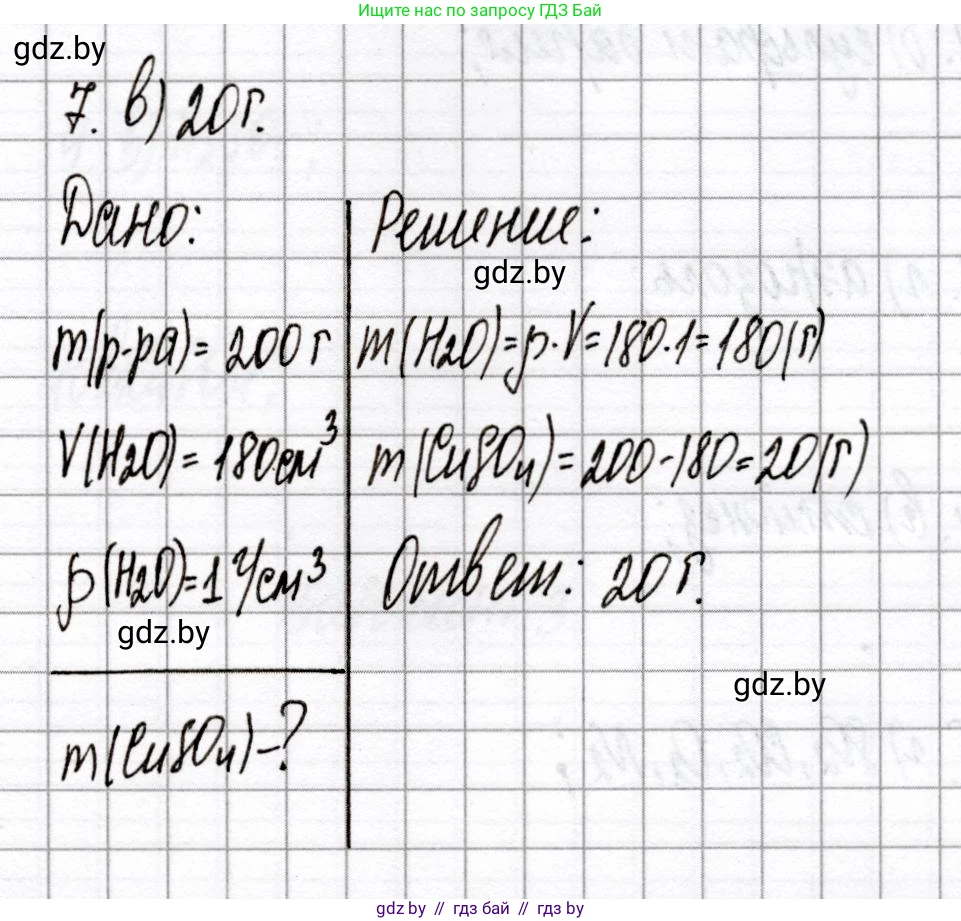 Ищите нас по запросу ГДЗ Бай
gdz.by
7. в) 20 г.
Дано:
m(р-ра) = 200 г
V(H2O) = 180 см³
ρ(H2O) = 1 г/см³
gdz.by
m(CuSO4) - ?
Решение:
gdz.by
m(H2O) = ρ·V = 180·1 = 180(г)
m(CuSO4) = 200 - 180 = 20(г)
Ответ: 20 г.
gdz.by
gdz.by // гдз бай // гдз by